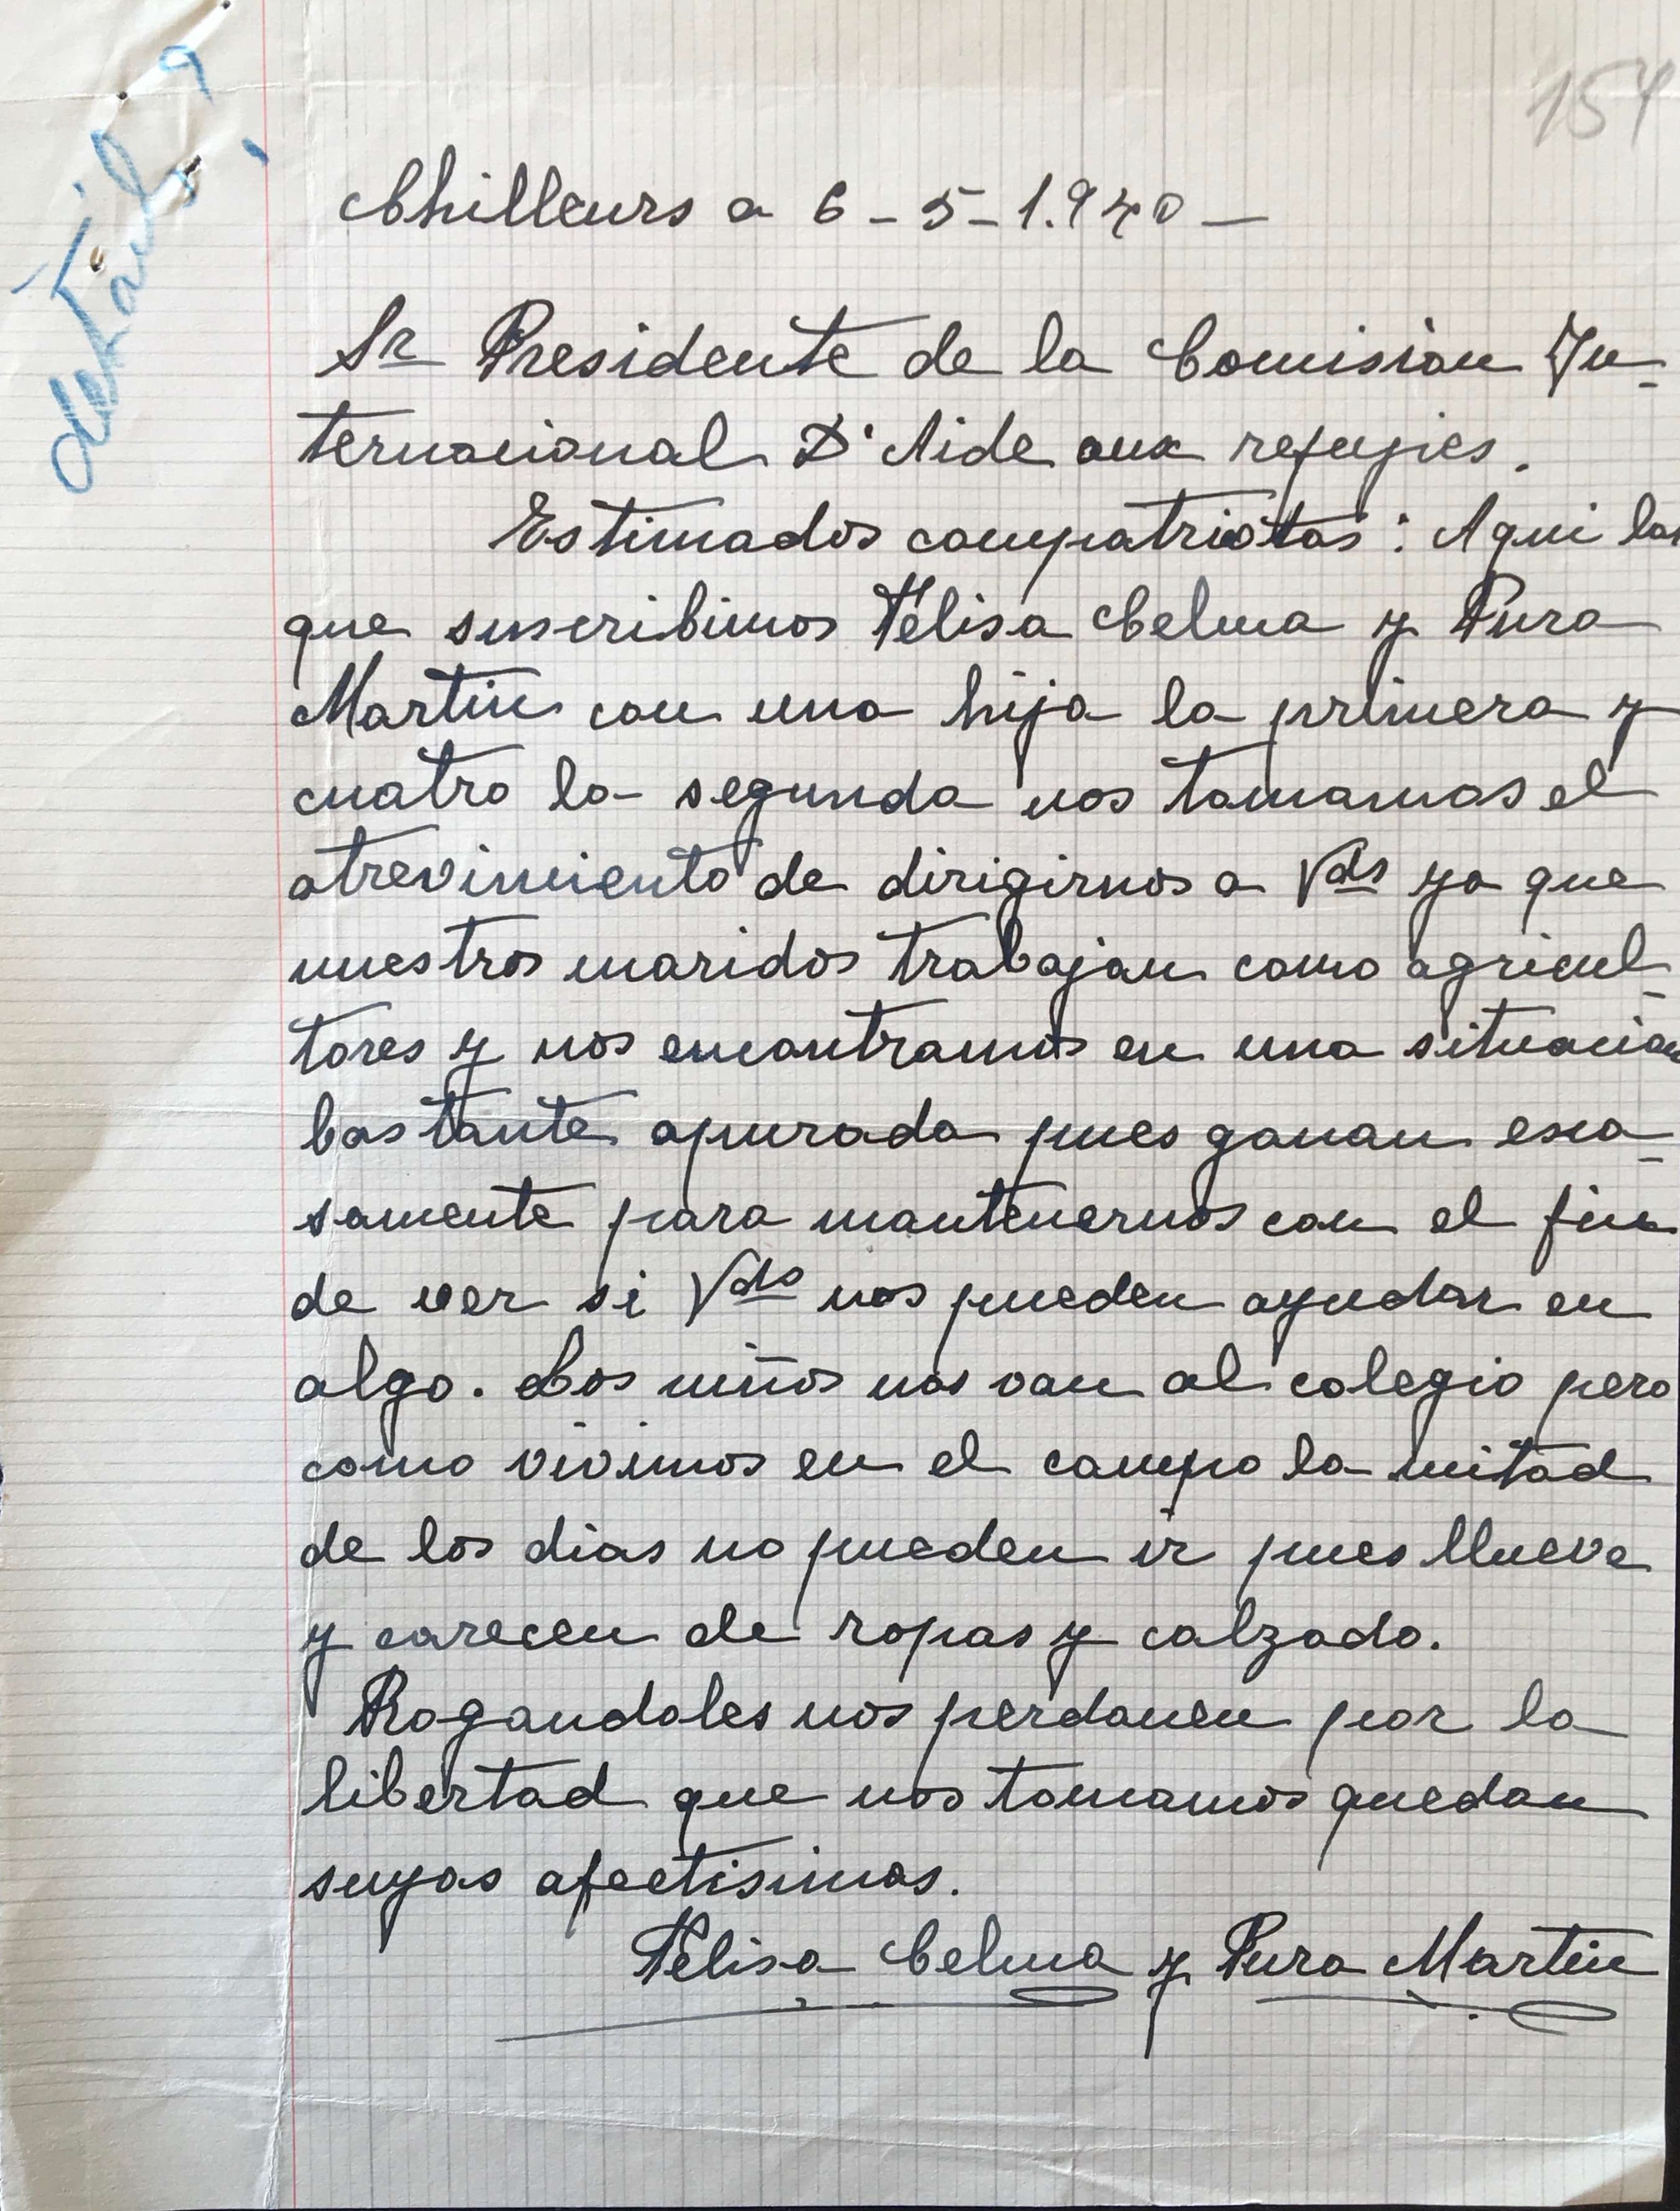 détail ?
154
Chilleurs a 6-5-1.940-
Sr Presidente de la Comision In-
ternacional D'Aide aux refugies.
Estimados compatriotas: Aqui las
que suscribimos Felisa Celma y Pura
Martin con una hija la primera y
cuatro la segunda nos tomamos el
atrevimiento de dirigirnos a Vds ya que
nuestros maridos trabajan como agricul-
tores y nos encontramos en una situacion
bastante apurada pues ganan esca-
samente para mantenernos con el fin
de ver si Vds nos pueden ayudar en
algo. Los niños nos van al colegio pero
como vivimos en el campo la mitad
de los dias no pueden ir pues llueve
y carecen de ropas y calzado.
Rogandoles nos perdonen por la
libertad que nos tomamos quedan
suyas afectisimas.
Felisa Celma y Pura Martin